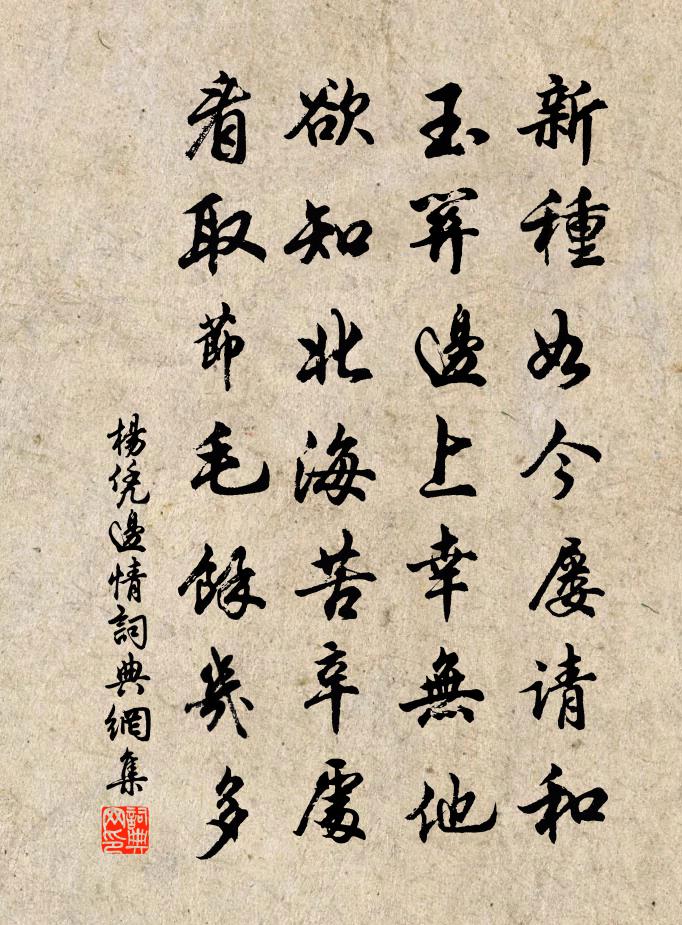 新種如今屡请和
玉關邊上幸無他
欲知北海苦辛處
看取節毛餘幾多
楊凭邊情詞典網集
詞典網印